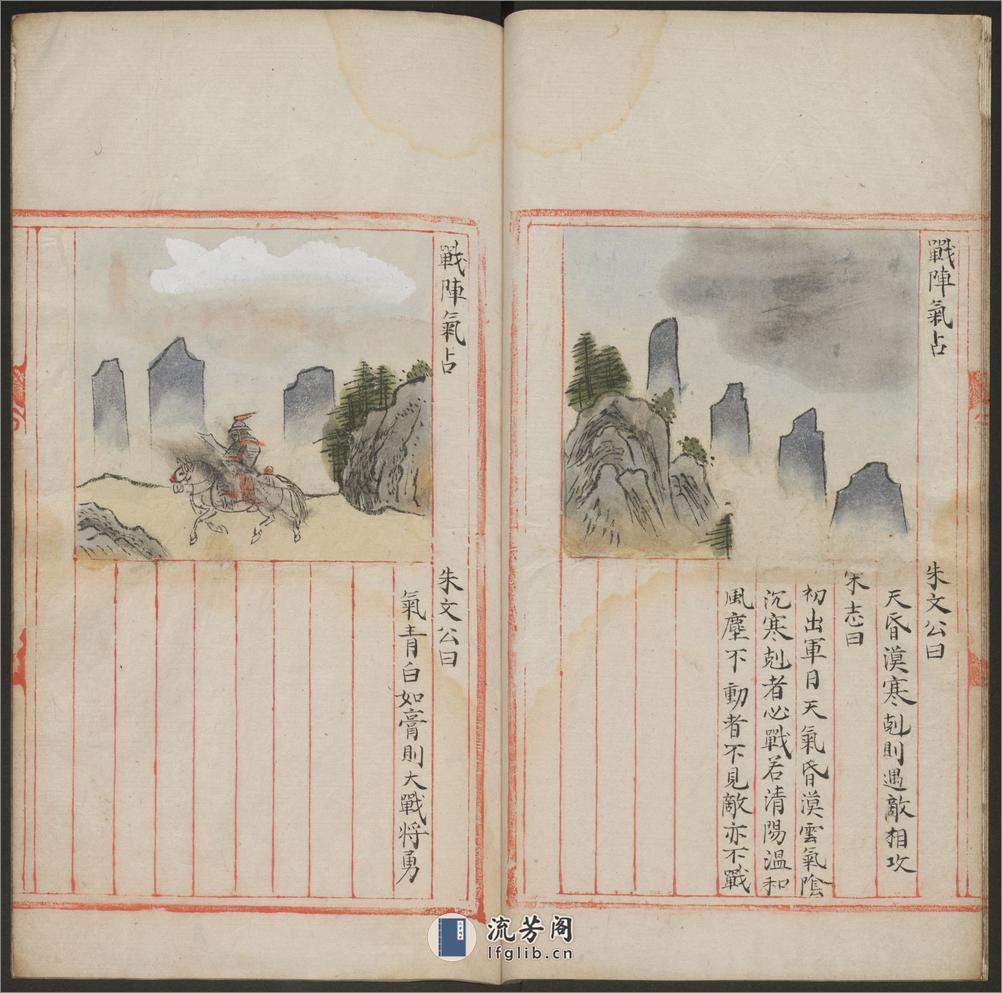 戰陣氣占
朱文公曰
天昏漠寒剋則遇敵相攻
宋志曰
初出軍日天氣昏漠雲氣陰
沉寒剋者必戰若清陽溫和
風塵不動者不見敵亦不戰
戰陣氣占
朱文公曰
氣青白如膏則大戰將勇
流芳阁
lfglib.cn